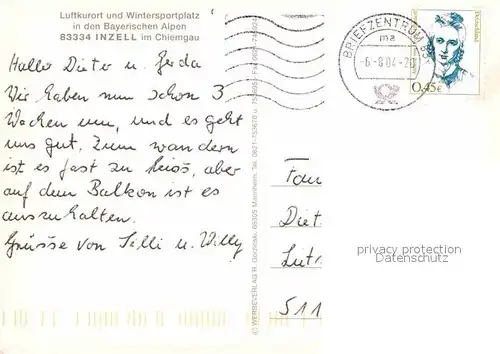 Luftkurort und Wintersportplatz
in den Bayerischen Alpen
83334 INZELL im Chiemgau
Hallo Dieter u. Gerda
Wir haben nun schon 3
Wochen um, und es geht
uns gut. Zum wandern
ist es fast zu heiss, aber
auf dem Balkon ist es
auszuhalten.
Grüsse von Silli u. Willy
(C) WERBEVERLAG R. Gorzinski, 68305 Mannheim, Tel. 0621
BRIEFZENTRUM
ma
-6.-8.04-20
Deutschland
0,45€
Fam
Diet
Lutr
511
privacy protection
Datenschutz